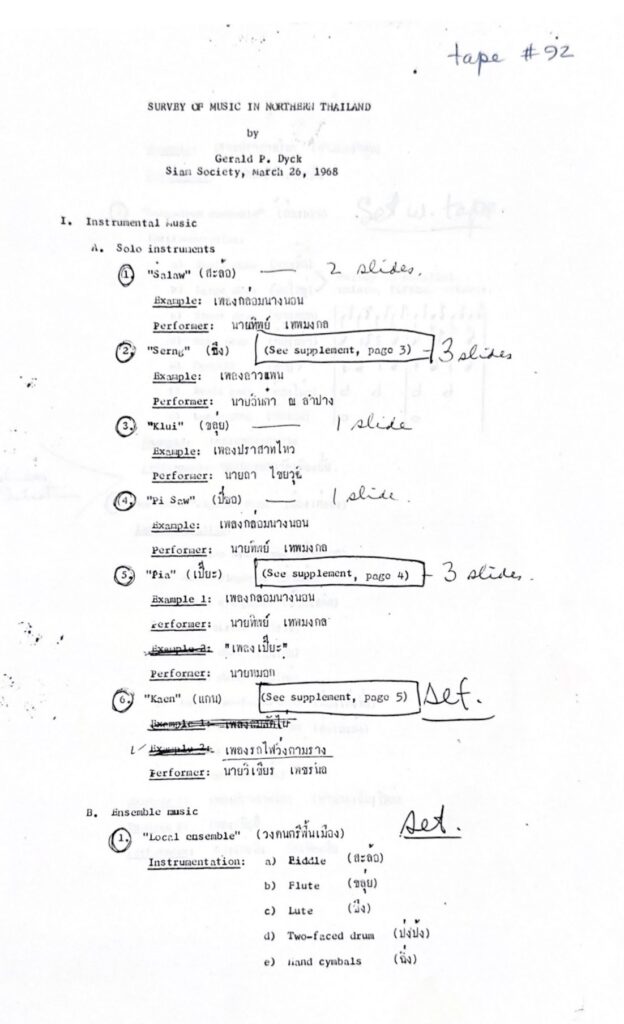 tape #92
SURVEY OF MUSIC IN NORTHERN THAILAND
by
Gerald P. Dyck
Siam Society, March 26, 1968
I. Instrumental Music
A. Solo instruments
1. "Salaw" (สะล้อ) — 2 slides.
Example: เพลงกล่อมนางนอน
Performer: นายทิพย์ เทพมงคล
2. "Serng" (ซึง) (See supplement, page 3) - 3 slides
Example: เพลงลาวแพน
Performer: นายอินถา ณ ลำปาง
3. "Klui" (ขลุ่ย) — 1 slide
Example: เพลงปราสาทไหว
Performer: นายถา ไชยวุฒิ
4. "Pi Saw" (ปี่ซอ) — 1 slide.
Example: เพลงกล่อมนางนอน
Performer: นายทิพย์ เทพมงคล
5. "Pia" (เปี๊ยะ) (See supplement, page 4) - 3 slides.
Example 1: เพลงกล่อมนางนอน
Performer: นายทิพย์ เทพมงคล
Example 2: "เพลงเปี๊ยะ"
Performer: นายหมอก
6. "Kaen" (แกน) (See supplement, page 5) set.
Example 1:
Example 2: เพลงรถไฟวิ่งตามราง
Performer: นายวิเชียร
B. Ensemble music
1. "Local ensemble" (วงดนตรีพื้นเมือง) set.
Instrumentation: a) Fiddle (สะล้อ)
b) Flute (ขลุ่ย)
c) Lute (ซึง)
d) Two-faced drum (ป่งป้ง)
e) Hand cymbals (ฉิ่ง)